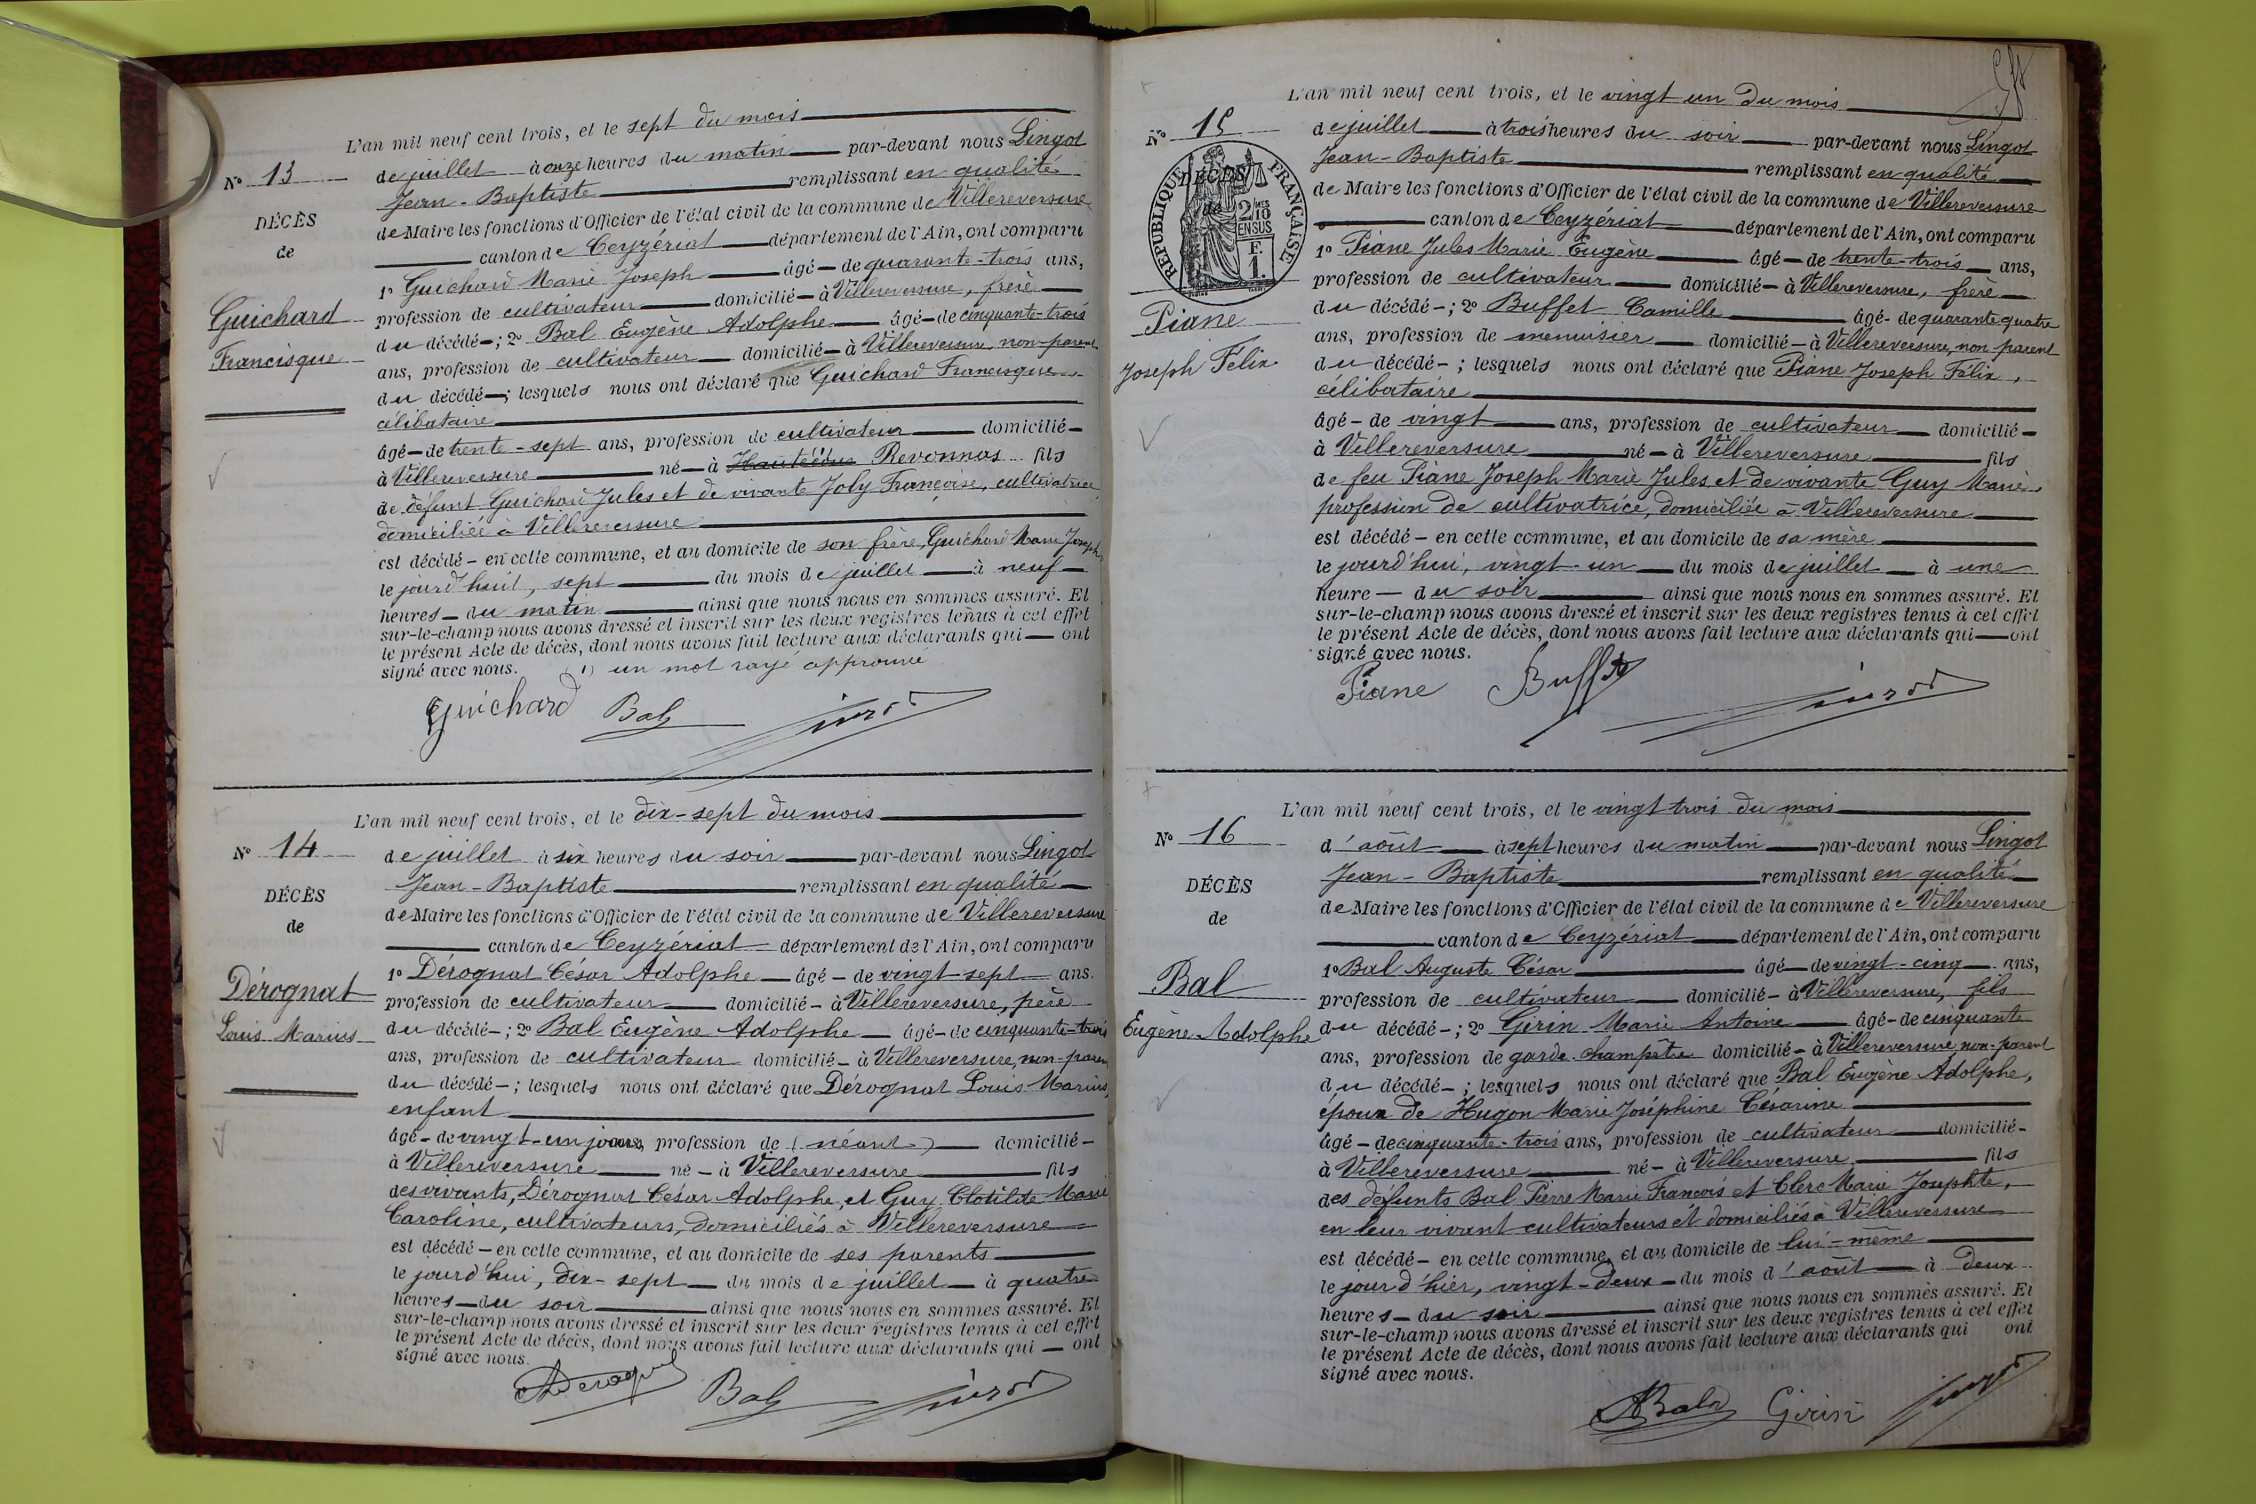 L'an mil neuf cent trois, et le sept du mois
No 13
de juillet à onze heures du matin par-devant nous Lingot
Jean-Baptiste remplissant en qualité
DÉCÈS
de Maire les fonctions d'Officier de l'état civil de la commune de Villereversure
de
canton de Ceyzériat département de l'Ain, ont comparu
1o Guichard Marie Joseph âgé de quarante-trois ans,
Guichard
profession de cultivateur domicilié à Villereversure, frère
du décédé ; 2o Bal Eugène Adolphe âgé de cinquante-trois
Francisque
ans, profession de cultivateur domicilié à Villereversure non-parent
du décédé ; lesquels nous ont déclaré que Guichard Francisque
célibataire
âgé de trente-sept ans, profession de cultivateur domicilié
à Villereversure né à Hautecour Revonnas fils
de défunt Guichard Jules et de vivante Joly Françoise, cultivatrice
domiciliée à Villereversure
est décédé en cette commune, et au domicile de son frère, Guichard Marie Joseph
le jourd'hui, sept du mois de juillet à neuf
heures du matin ainsi que nous nous en sommes assuré. Et
sur-le-champ nous avons dressé et inscrit sur les deux registres tenus à cet effet
le présent Acte de décès, dont nous avons fait lecture aux déclarants qui ont
signé avec nous. (1) un mot rayé approuvé
Guichard Bal
L'an mil neuf cent trois, et le dix-sept du mois
No 14
de juillet à six heures du soir par-devant nous Lingot
Jean-Baptiste remplissant en qualité
DÉCÈS
de Maire les fonctions d'Officier de l'état civil de la commune de Villereversure
de
canton de Ceyzériat département de l'Ain, ont comparu
1o Dérognat César Adolphe âgé de vingt sept ans.
Dérognat
profession de cultivateur domicilié à Villereversure, père
du décédé ; 2o Bal Eugène Adolphe âgé de cinquante-trois
Louis Marius
ans, profession de cultivateur domicilié à Villereversure, non-parent
du décédé ; lesquels nous ont déclaré que Dérognat Louis Marius,
enfant
âgé de vingt-un jours, profession de (néant) domicilié
à Villereversure né à Villereversure fils
des vivants, Dérognat César Adolphe, et Guy Clotilde Marie
Caroline, cultivateurs, domiciliés à Villereversure
est décédé en cette commune, et au domicile de ses parents
le jourd'hui, dix-sept du mois de juillet à quatre
heures du soir ainsi que nous nous en sommes assuré. Et
sur-le-champ nous avons dressé et inscrit sur les deux registres tenus à cet effet
le présent Acte de décès, dont nous avons fait lecture aux déclarants qui ont
signé avec nous.
Bal
L'an mil neuf cent trois, et le vingt un du mois
No 15
de juillet à trois heures du soir par-devant nous Lingot
Jean-Baptiste remplissant en qualité
RÉPUBLIQUE FRANÇAISE
DÉCÈS
de
2/10 EN SUS
F. 1.
de Maire les fonctions d'Officier de l'état civil de la commune de Villereversure
canton de Ceyzériat département de l'Ain, ont comparu
1o Piane Jules Marie Eugène âgé de trente-trois ans,
profession de cultivateur domicilié à Villereversure, frère
Piane
du décédé ; 2o Buffet Camille âgé de quarante quatre
ans, profession de menuisier domicilié à Villereversure, non parent
Joseph Félix
du décédé ; lesquels nous ont déclaré que Piane Joseph Félix,
célibataire
âgé de vingt ans, profession de cultivateur domicilié
à Villereversure né à Villereversure fils
de feu Piane Joseph Marie Jules et de vivante Guy Marie,
profession de cultivatrice, domiciliée à Villereversure
est décédé en cette commune, et au domicile de sa mère
le jourd'hui, vingt-un du mois de juillet à une
heure du soir ainsi que nous nous en sommes assuré. Et
sur-le-champ nous avons dressé et inscrit sur les deux registres tenus à cet effet
le présent Acte de décès, dont nous avons fait lecture aux déclarants qui ont
signé avec nous.
Piane Buffet
L'an mil neuf cent trois, et le vingt trois du mois
No 16
d'août à sept heures du matin par-devant nous Lingot
Jean-Baptiste remplissant en qualité
DÉCÈS
de Maire les fonctions d'Officier de l'état civil de la commune de Villereversure
de
canton de Ceyzériat département de l'Ain, ont comparu
1o Bal Auguste César âgé de vingt-cinq ans,
Bal
profession de cultivateur domicilié à Villereversure, fils
Eugène Adolphe
du décédé ; 2o Girin Marie Antoine âgé de cinquante
ans, profession de garde champêtre domicilié à Villereversure non-parent
du décédé ; lesquels nous ont déclaré que Bal Eugène Adolphe,
époux de Hugon Marie Joséphine Césarine
âgé de cinquante-trois ans, profession de cultivateur domicilié
à Villereversure né à Villereversure fils
des défunts Bal Pierre Marie François et Clerc Marie Josephte,
en leur vivant cultivateurs et domiciliés à Villereversure
est décédé en cette commune, et au domicile de lui-même
le jour d'hier, vingt-deux du mois d'août à deux
heures du soir ainsi que nous nous en sommes assuré. Et
sur-le-champ nous avons dressé et inscrit sur les deux registres tenus à cet effet
le présent Acte de décès, dont nous avons fait lecture aux déclarants qui ont
signé avec nous.
ABal Girin